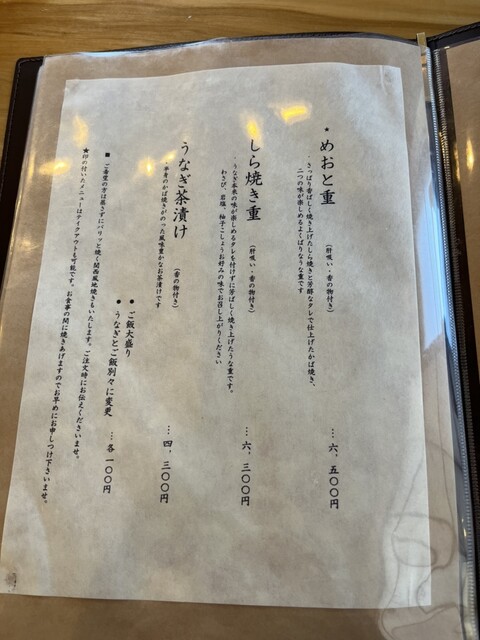 ★めおと重 （肝吸い・香の物付き） … 六、五〇〇円
さっぱり香ばしく焼き上げたしら焼きと芳醇なタレで仕上げたかば焼き、
二つの味が楽しめるよくばりなうな重です
しら焼き重 （肝吸い・香の物付き） … 六、三〇〇円
うなぎ本来の味が楽しめるタレを付けずに芳ばしく焼き上げたうな重です。
わさび、岩塩、柚子こしょうお好みの味でお召し上がりください
うなぎ茶漬け （香の物付き） … 四、三〇〇円
半身のかば焼きがのった風味豊かなお茶漬けです
● ご飯大盛り
● うなぎとご飯別々に変更 … 各一〇〇円
■ ご希望の方は蒸さずにパリッと焼く関西風地焼きもいたします。ご注文時にお伝えくださいませ。
★印の付いたメニューはテイクアウトも可能です。お食事の間に焼きあげますのでお早めにお申しつけ下さいませ。